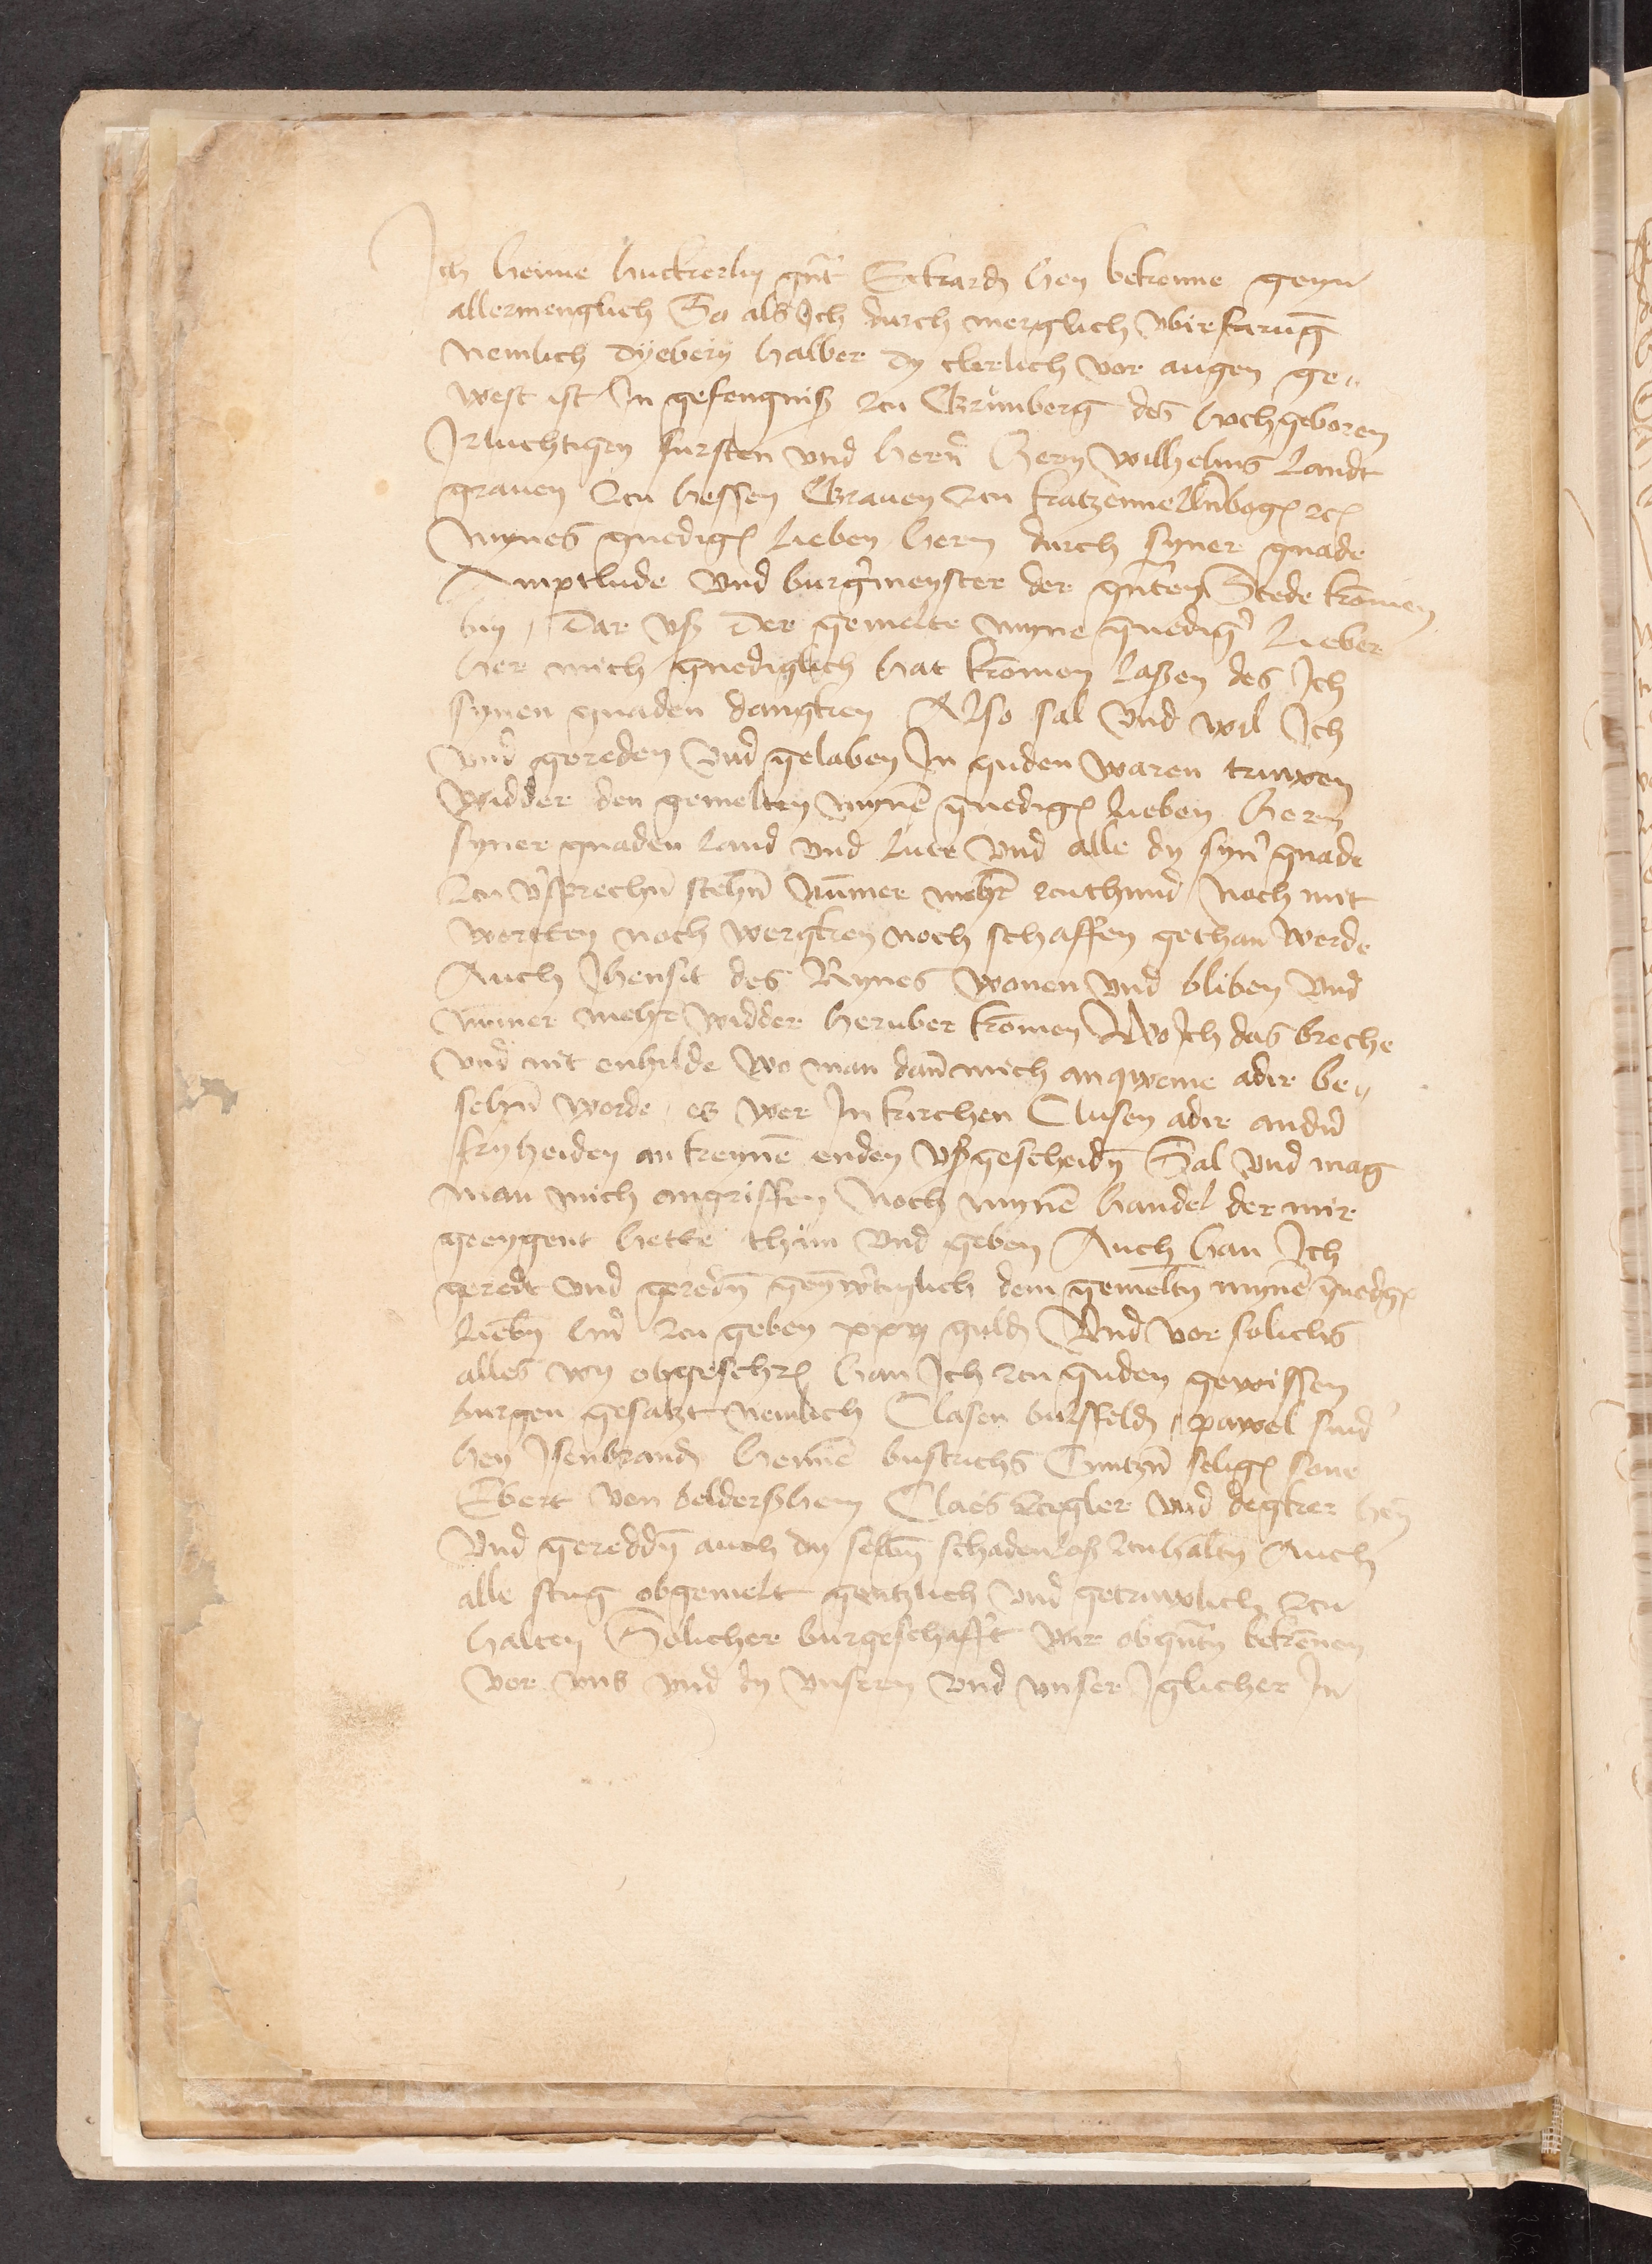 Ich henne huckerlin gnt̄ Eckardͤ hen bekenne geyn
allermenglich So als Ich durch merglich vbirfarūg
nemlich dyebery halber dy clerlich vor augen ge„
west ist In gefengniß zcu Grunberg des hochgeboren
Irluchtigen fursten vnd hern̄ Hern wilhelms Landt
grauen zcu hessen Grauen zcu katzennelnbogen zc
mynes gnedigen lieben hern durch syner gnade
Amptlude vnd burg̉meyster der gnten Stede komen
bin, Dar vß Der gemelte myne gnedig̉ lieber
her mich gnediglich hat komen laßen des Ich
synen gnaden dangken Also sal vnd wil Ich
vnd gereden vnd gelaben In guden waren truwen
widder den gemelten mynē gnedigen lieben hern
syner gnaden land vnd lute vnd alle dy syn̉ gnade
zcu v̉sprechn̄ stehn̄ nūmer mehr zcuthund noch mit
wortten noch wergken noch schaffen gethan werde
Auch Jhensit des Rynes wonen vnd bliben vnd
nūmer mehr widder heruber komen Wo Ich das breche
vnd nit enhilde wo man dan̄ mich anqweme adir be„
sehn̄ worde, es wer In kirchen Clusen adir and̉n
fryheiden an keynē enden vßgescheidn̄ Sal vnd mag
man mich angriffen Noch mynē handel der mir
geeygent hette thun vnd geben Auch han Ich
geredt vnd geredn̄ geynw̉tiglich dem gemeltn̄ mynē gnedgen
liebn̄ hn̄ zcu geben xxv guldͤ Vnd vor solichs
alles wy obgeschrͤ han Ich zcu guden gewissen
burgen gesatzt nemlich Clasen burffeldͤ, pawel
hen Isenbrandͤ Hennē bustrichs Cuntzn̄ seligen sone
Ebert von beldersshem Claes zcigler vnd degker hen
Vnd gereddn̄ auch dy selbn̄ schadenloß zcuhaltn̄ Auch
alle stug obgemelt gentzlich vnd getruwlich zcu
halten Solicher burgeschafft wir obgntn̄ bekennen
vor vns vnd dy vnsern vnd vnser Iglicher In